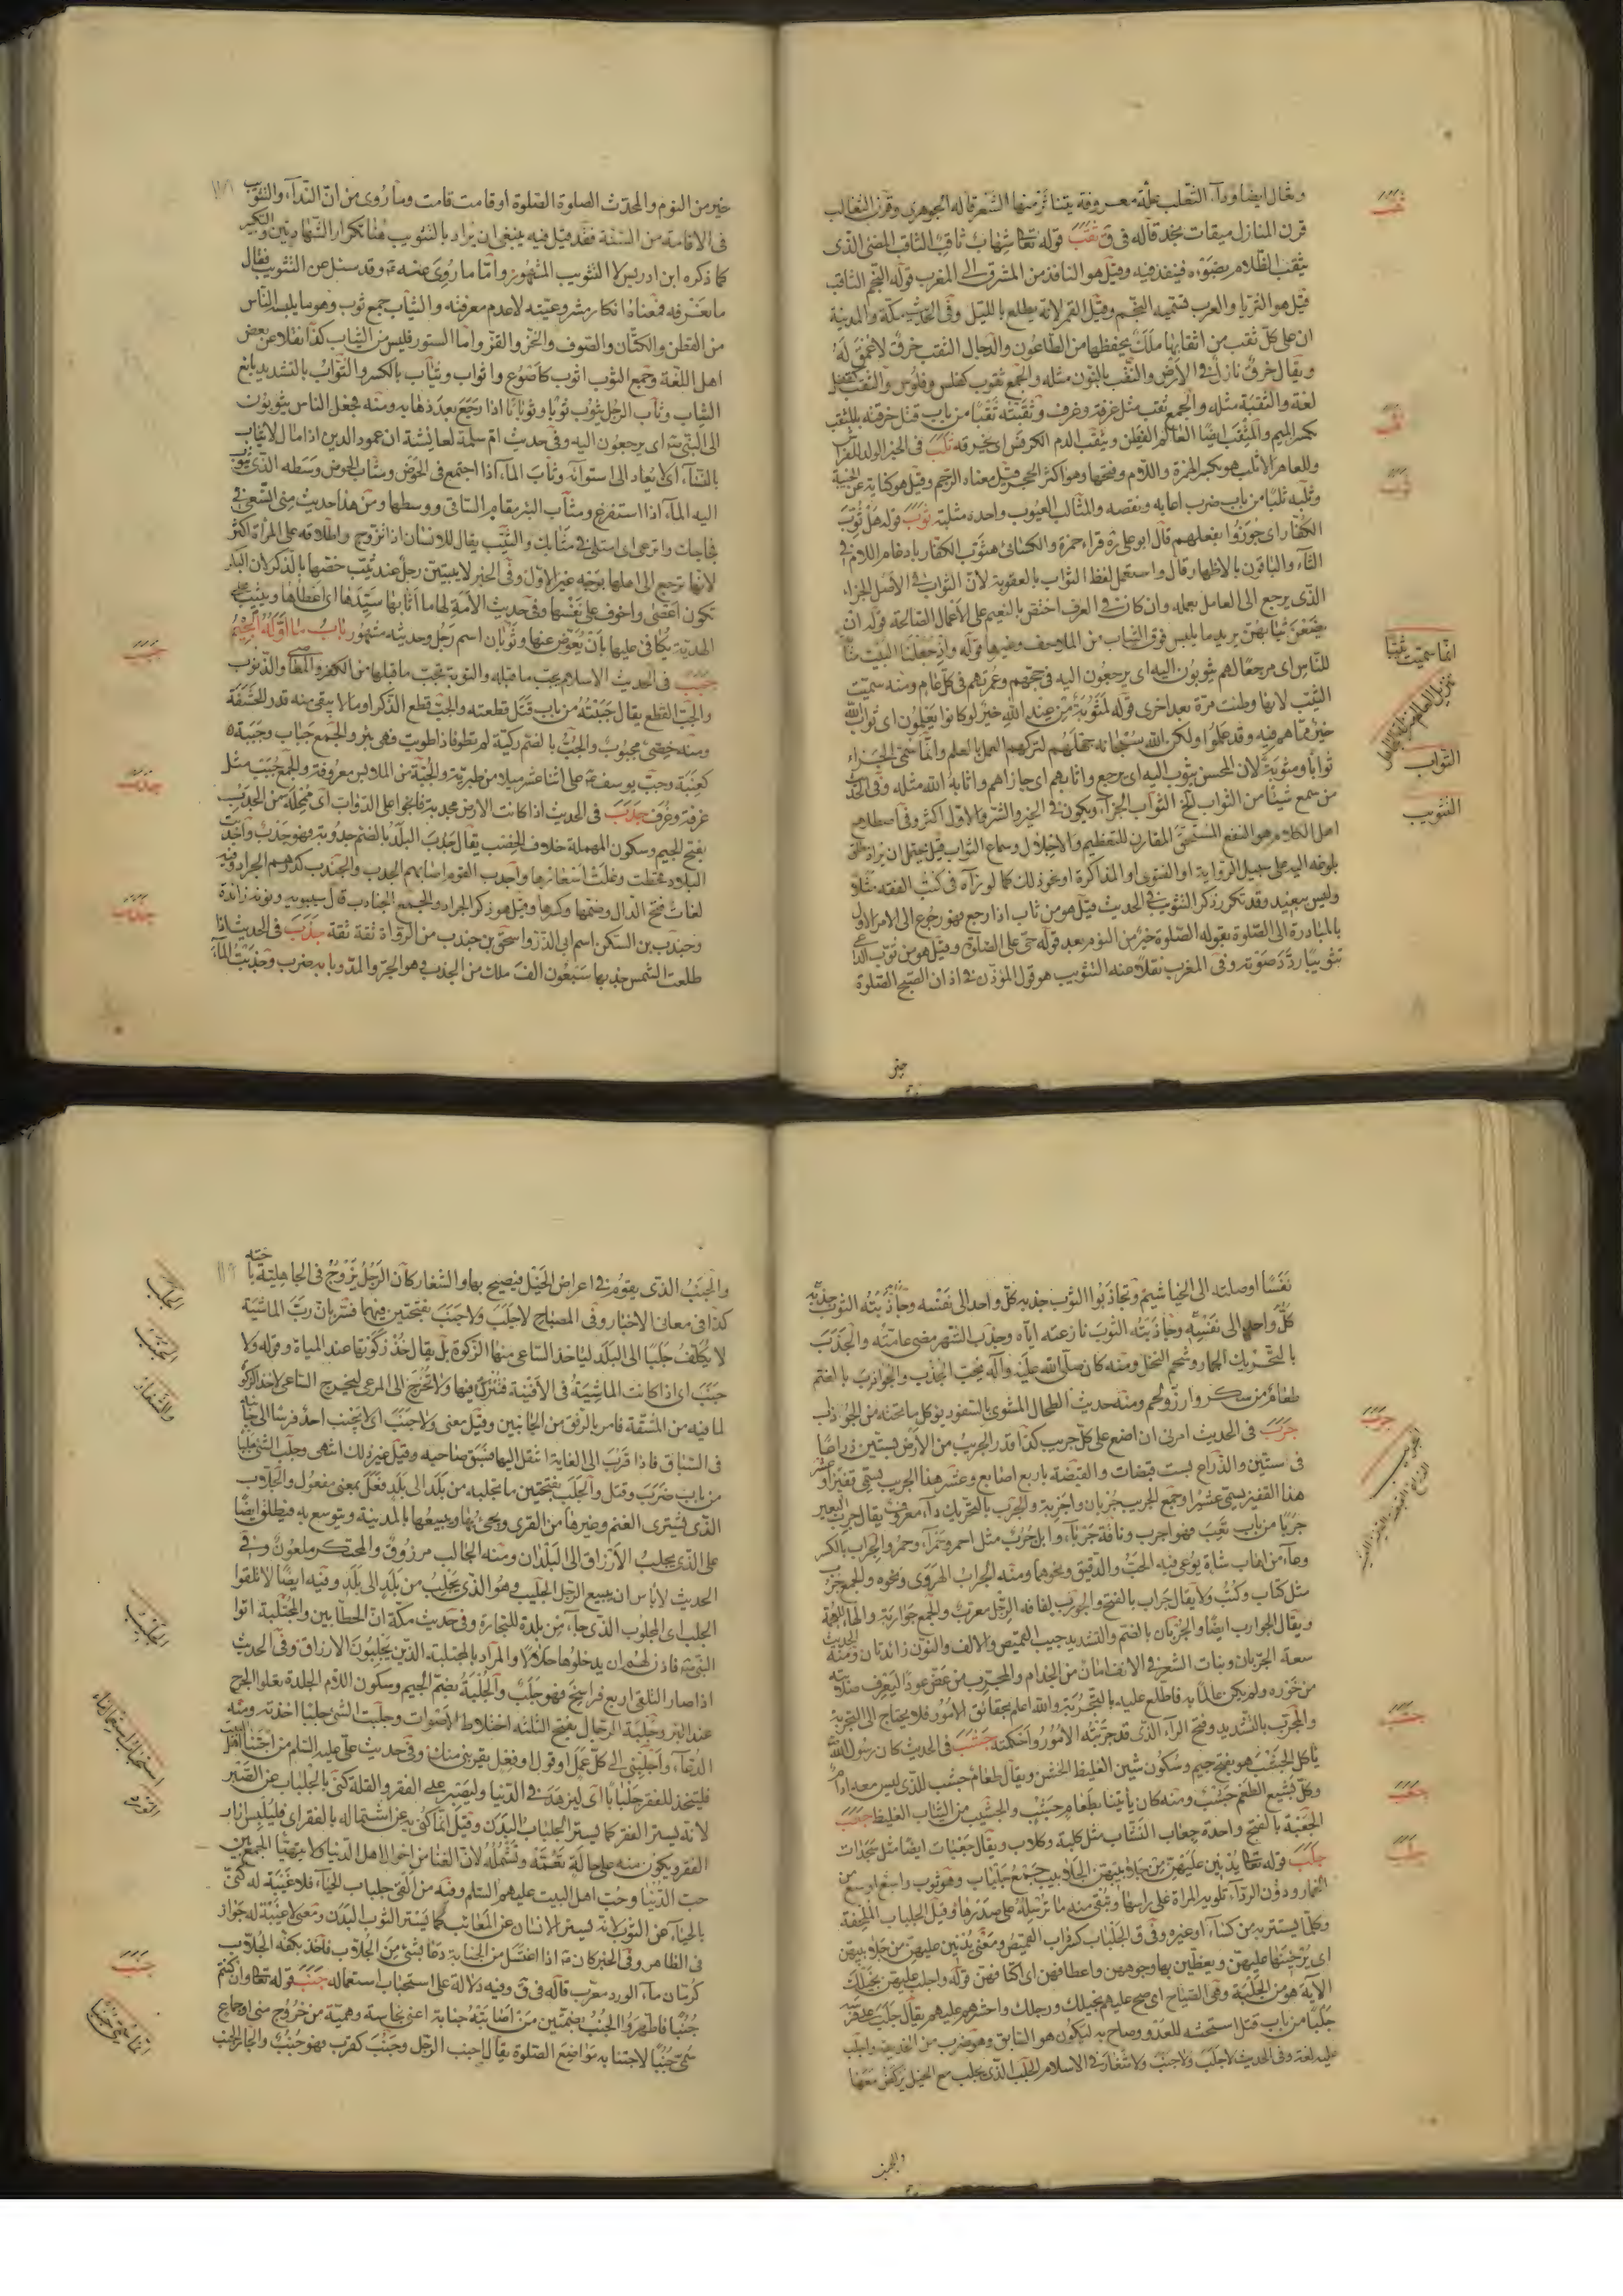 ويقال ايضا وداء الثعلب علة معروفة يتناثر منها الشعر قاله الجوهري وقرن الثعالب
قرن المنازل ميقات نجد قاله في ق ثقب قوله تعا شهاب ثاقب الثاقب المضئ الذى
يثقب الظلام بضوئه فينفذ فيه وقيل هو النافذ من المشرق الى المغرب قوله النجم الثاقب
قيل هو الثريا والعرب تسميه النجم وقيل القمر لانه يطلع بالليل وفى الحديث مكة والمدينة
ان على كل نقب من اثقابها ملك يحفظها من الطاعون والدجال الثقب خرق لا عمق له
ويقال خرق نازل في الارض والنقب بالنون مثله والجمع ثقوب كفلس وفلوس والثقب كقفل
لغة والثقبة مثله والجمع ثقب مثل غرفة وغرف وثقبته ثقبا من باب قتل خرقته بالمثقب
بكسر الميم والمثقب ايضا العالم الفطن ويثقب الدم الكرفس اى يخرقه ثلب في الخبر الولد للفراش
وللعاهر الاثلب هو بكسر الهمزة واللام وفتحها وهو اكثر الحجر وقيل معناه الرجم وقيل هو كناية عن الخيبة
وثلبه ثلبا من باب ضرب اعابه وبنقصه والمثالب العيوب واحده مثلبة ثوب قوله هل ثوب
الكفار اى جوزوا بفعلهم قال ابو على ره قراء حمزة والكسائى هثوب الكفار بادغام اللام في
الثاء والباقون بالاظهار قال واستعمل لفظ الثواب بالعقوبة لان الثواب في الاصل الجزاء
الذى يرجع الى العامل بعمله وان كان في العرف اختص بالنعيم على الاعمال الصالحة قوله ان
يضعن ثيابهن يريد ما يلبس فوق الثياب من الملاحف وغيرها قوله واذ جعلنا البيت مثابة
للناس اى مرجعا لهم يثوبون اليه اى يرجعون اليه في حجهم وعمرتهم في كل عام ومنه سميت
الثيب لانها وطئت مرة بعد اخرى قوله لمثوبة من عند الله خير لو كانوا يعلمون اى ثواب الله
خير مما هم فيه وقد علموا ولكن الله سبحانه جهلهم لتركهم العمل بالعلم وانما سمى الجزاء
ثوابا ومثوبة لان المحسن يثوب اليه اى يرجع واثابهم اى جازاهم واثابه الله مثله وفى الحديث
من سمع شيئا من الثواب الخ الثواب الجزاء ويكون في الخير والشر والاول اكثر وفى اصطلاح
اهل الكلام هو النفع المستحق المقارن للتعظيم والاجلال وسماع الثواب قيل يحتمل ان يراد مطلق
بلوغه اليه على سبيل الرواية او الفتوى او المذاكرة او نحو ذلك كما لو رآه في كتب الفقه مثلا
وليس ببعيد وقد تكرر ذكر التثويب في الحديث قيل هو من ثاب اذا رجع فهو رجوع الى الامر الاول
بالمبادرة الى الصلوة بقوله الصلوة خير من النوم بعد قوله حى على الصلوة وقيل هو من ثوب الداعي
تثويبا ردد صوته وفى المغرب نقلا عنه التثويب هو قول المؤذن في اذان الصبح الصلوة
ثعب
ثقب
ثوب
انما سميت ثيبا
تنزيل العالم منزلة الجاهل
الثواب
التثويب
خير
خير من النوم والمحدث الصلوة الصلوة او قامت قامت وما روى من ان النداء والتثويب
فى الاقامة من السنة فقد قيل فيه ينبغى ان يراد بالتثويب هنا تكرار الشهادتين والتكبير
كما ذكره ابن ادريس لا التثويب المشهور واما ما روى عنه ع وقد سئل عن التثويب فقال
ما نعرفه فمعناه انكار مشروعيته لا عدم معرفته والثياب جمع ثوب وهو ما يلبسه الناس
من القطن والكتان والصوف والخز والقز واما الستور فليس من الثياب كذا نقلا عن بعض
اهل اللغة وجمع الثوب اثوب كاضوع واثواب وثياب بالكسر والثواب بالتشديد بائع
الثياب وثاب الرجل يثوب ثوبا وثوبانا اذا رجع بعد ذهابه ومنه فجعل الناس يثوبون
الى النبي ص اى يرجعون اليه وفى حديث ام سلمة لعائشة ان عمود الدين اذا مال لا يثاب
بالنساء اى لا يعاد الى استوائه وثاب الماء اذا اجتمع فى الحوض ومثاب الحوض وسطه الذى يثوب
اليه الماء اذا استفرغ ومثاب البئر مقام الساقى ووسطها ومن هذا حديث منى الشعرى
فجاجات وانزعى اى امتلى في مثابك والثيب يقال للانسان اذا تزوج واطلاقه على المرأة اكثر
لانها ترجع الى اهلها بوجه غير الاول وفى الخبر لا يبيتن رجل عند ثيب خصها بالذكر لان البكر
تكون اعصى واخوف على نفسها وفى حديث الامة لها ما اثابها سيدها اى اعطاها ويثيب على
الهدية يكافى عليها بان يعوض عنها وثوبان اسم رجل وحديثه مشهور باب ما اوله الجيم
جبب فى الحديث الاسلام يجب ما قبله والتوبة تجب ما قبلها من الكفر والمعاصى والذنوب
والجب القطع يقال جببته من باب قتل قطعته والجب قطع الذكر او ما لا يبقى منه قدر الحشفة
ومنه خصى مجبوب والجب بالضم ركية لم تطو فاذا طويت فهى بئر والجمع جباب وجببة
كعنبة وجب يوسف ع على اثنا عشر ميلا من طبرية والجبة من الملابس معروفة والجمع جبب مثل
غرفة وغرف جدب فى الحديث اذا كانت الارض مجدبة فانجوا على الدواب اى ممحلة من الجدب
بفتح الجيم وسكون المهملة خلاف الخصب يقال جدب البلد بالضم جدوبة وهو جدب واجدبت
البلاد قحطت وغلت اسعارها واجدب القوم اصابهم الجدب والجندب كدرهم الجراد وفيه
لغات فتح الدال وضمها وكسرها وقيل هو ذكر الجراد والجمع الجنادب قال سيبويه ونونه زائدة
وجندب بن السكن اسم ابى الذر واسحق بن جندب من الرواة ثقة ثقة جذب فى الحديث اذا
طلعت الشمس جذبها سبعون الف ملك من الجذب هو الجر والمد وبابه ضرب وجذبت الماء
جبب
جدب
جذب
نفسا اوصلته الى الخياشيم وتجاذبوا الثوب جذبه كل واحد الى نفسه وجاذبته الثوب جذبه
كل واحد الى نفسه وجاذبته الثوب نازعته اياه وجذب الشهر مضى عامته والجذب
بالتحريك الجمار وشحم النخل ومنه كان صلى الله عليه وآله يحب الجذب والجواذب بالضم
طعام من سكر وارز ولحم ومنه حديث الطحال المشوى بالسفود يؤكل ما تحته من الجواذب
جرب فى الحديث امرنى ان اضع على كل جريب كذا قدر الجريب من الارض بستين ذراعا
فى ستين والذراع بست قبضات والقبضة باربع اصابع وعشر هذا الجريب يسمى قفيزا وعشر
هذا القفيز يسمى عشيرا وجمع الجريب جربان واجربة والجرب بالتحريك داء معروف يقال جرب البعير
جربا من باب تعب فهو اجرب وناقة جرباء وابل جرب مثل احمر وحمراء وحمر والجراب بالكسر
وعاء من اهاب شاة يوعى فيه الحب والدقيق ونحوهما ومنه الجراب الهروى ونحوه والجمع جرب
مثل كتاب وكتب ولا يقال جراب بالفتح والجورب لفافة الرجل معرب والجمع جواربة والهاء للعجمة
ويقال الجوارب ايضا والجربان بالضم والتشديد جيب القميص والالف والنون زائدتان ومنه الحديث
سعة الجربان ونبات الشعر في الانف امان من الجذام والمجرب من عض عودا ليعرف صلابته
من خوره ولم يكن عالما به فاطلع عليه بالتجربة والله اعلم بحقائق الامور فلا يحتاج الى التجربة
والمجرب بالتشديد وفتح الراء الذى قد جربته الامور واحكمته جشب فى الحديث كان رسول الله ص
ياكل الجشب هو بفتح جيم وسكون شين الغليظ الخشن ويقال طعام جشب للذى ليس معه ادام
وكل بشيع الطعم جشب ومنه كان ياتينا بطعام جشب والجشيب من الثياب الغليظ جعب
الجعبة بالفتح واحدة جعاب النشاب مثل كلبة وكلاب ويقال جعبات ايضا مثل سجدات
جلب قوله تعا يدنين عليهن من جلابيبهن الجلابيب جمع جلباب وهو ثوب واسع اوسع من
الخمار ودون الرداء تلويه المراة على راسها وتبقى منه ما ترسله على صدرها وقيل الجلباب الملحفة
وكلما يستتر به من كساء او غيره وفى ق الجلباب كسرداب القميص ومعنى يدنين عليهن من جلابيبهن
اى يرخينها عليهن ويغطين بها وجوههن واعطافهن اى اكتافهن قوله واجلب عليهم بخيلك
الآية هو من الجلبة وهى الصياح اى صح عليهم بخيلك ورجلك واحشرهم عليهم يقال جلب على فرسه
جلبا من باب قتل استحثه للعدو وصاح به ليكون هو السابق وهو ضرب من الخديعة واجلب
عليه لغة وفى الحديث لا جلب ولا جنب ولا شغار في الاسلام الجلب الذى يجلب مع الخيل يركض معها
جرب
الجريب
جشب
جعب
جلب
والجنب
والجنب الذى يقوم في اعراض الخيل فيصيح بها والشغار كان الرجل يزوج فى الجاهلية باخته
كذا فى معانى الاخبار وفى المصباح لا جلب ولا جنب بفتحتين فيهما فسر بان رب الماشية
لا يكلف جلبها الى البلد لياخذ الساعى منها الزكوة بل يقال خذ زكوتها عند المياه وقوله ولا
جنب اى اذا كانت الماشية فى الافنية فتترك فيها ولا تخرج الى المرعى ليخرج الساعى لاخذ الزكوة
لما فيه من المشقة فامر بالرفق من الجانبين وقيل معنى ولا جنب اى لا يجنب احد فرسا الى جانبه
فى السباق فاذا قرب الى الغاية انتقل اليها فسبق صاحبه وقيل غير ذلك انتهى وجلب الشئ جلبا
من باب ضرب وقتل والجلب بفتحتين ما تجلبه من بلد الى بلد فعل بمعنى مفعول والجلاب
الذى يشترى الغنم وغيرها من القرى ويجئ بها ويبيعها بالمدينة ويتوسع به فيطلق ايضا
على الذى يجلب الارزاق الى البلدان ومنه الجالب مرزوق والمحتكر ملعون وفى
الحديث لا باس ان يبيع الرجل الجليب وهو الذى يجلب من بلد الى بلد وفيه ايضا لا تلقوا
الجلب اى المجلوب الذى جاء من بلدة للتجارة وفى حديث مكة ان الحطابين والمجتلبة اتوا
النبي ص فاذن لهم ان يدخلوها حلالا والمراد بالمجتلبة الذين يجلبون الارزاق وفى الحديث
اذا صار التلقى اربع فراسخ فهو جلب والجلبة بضم الجيم وسكون اللام الجلدة تعلو الجرح
عند البرء وجلبة الرجال بفتح الثلثة اختلاط الاصوات وجلبت الشئ جلبا اخذته ومنه
الدعاء واجلبنى الى كل عمل او قول او فعل يقربنى منك وفى حديث على عليه السلم من احبنا اهل البيت
فليتخذ للفقر جلبابا اى ليزهد فى الدنيا وليصبر على الفقر والقلة كنى بالجلباب عن الصبر
لانه يستر الفقر كما يستر الجلباب البدن وقيل انما كنى به عن اشتماله بالفقر اى فليلبس ازار
الفقر ويكون منه على حالة تعمه وتشمله لان الغنا من احوال اهل الدنيا ولا يتهيا الجمع بين
حب الدنيا وحب اهل البيت عليهم السلم وفيه من القى جلباب الحياء فلا غيبة له كنى
بالحياء عن الثوب لانه يستر الانسان عن المعائب كما يستر الثوب البدن ومعنى لا غيبة له جواز
فى الظاهر وفى الخبر كان ص اذا اغتسل من الجنابة دعا بشئ من الجلاب فاخذ بكفه الجلاب
كزنار ماء الورد معرب قاله فى ق وفيه دلالة على استحباب استعماله جنب قوله تعا وان كنتم
جنبا فاطهروا الجنب بضمتين من اصابته جنابة اعنى نجاسة وهمية من خروج منى او جماع
سمى جنبا لاجتنابه مواضع الصلوة يقال اجنب الرجل وجنب كقرب فهو جنب والجار الجنب
الجلب
الجنب
والشغار
الجلب
جنب
انما سمى جنبا